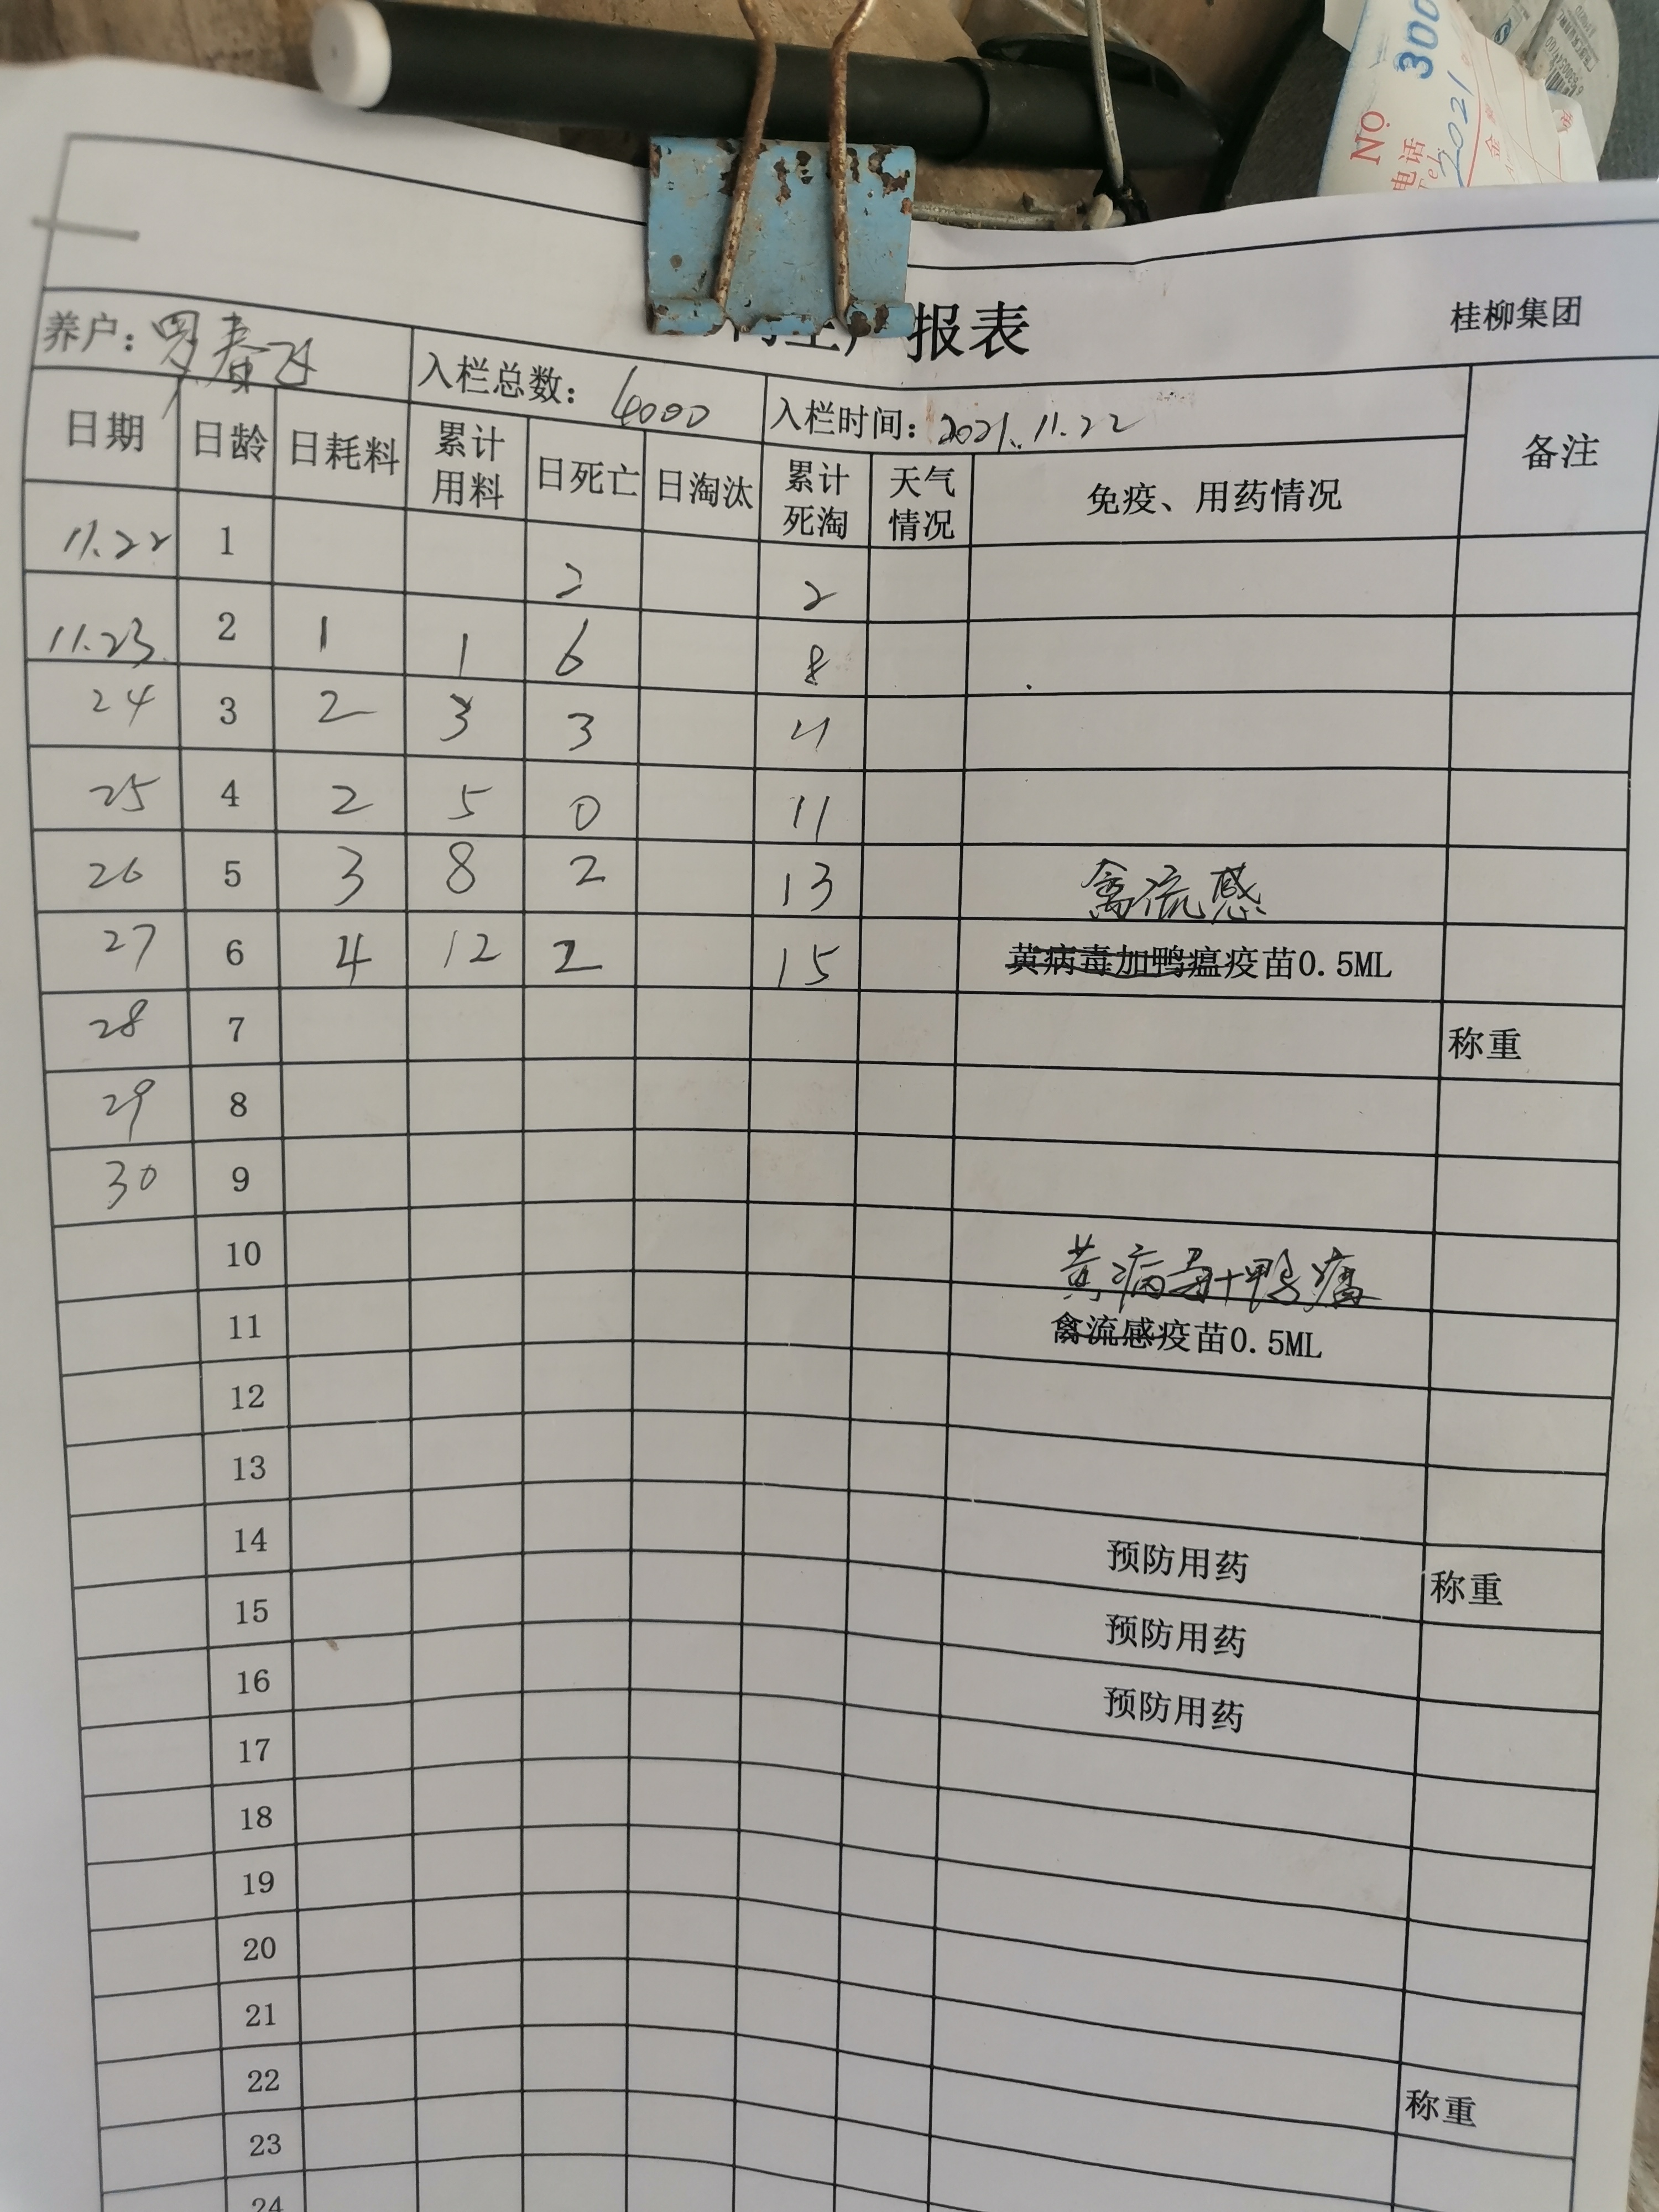 NO 300
电话
Tel 2021
报表
桂柳集团
养户：罗春飞 入栏总数：4000 入栏时间：2021.11.22 备注
日期 日龄 日耗料 累计用料 日死亡 日淘汰 累计死淘 天气情况 免疫、用药情况
11.22 1 2 2
11.23. 2 1 1 6 8
24 3 2 3 3 11
25 4 2 5 0 11
26 5 3 8 2 13 禽流感
27 6 4 12 2 15 黄病毒加鸭瘟疫苗0.5ML
28 7 称重
29 8
30 9
10 黄病毒+鸭瘟
11 禽流感疫苗0.5ML
12
13
14 预防用药 称重
15 预防用药
16 预防用药
17
18
19
20
21
22 称重
23
24